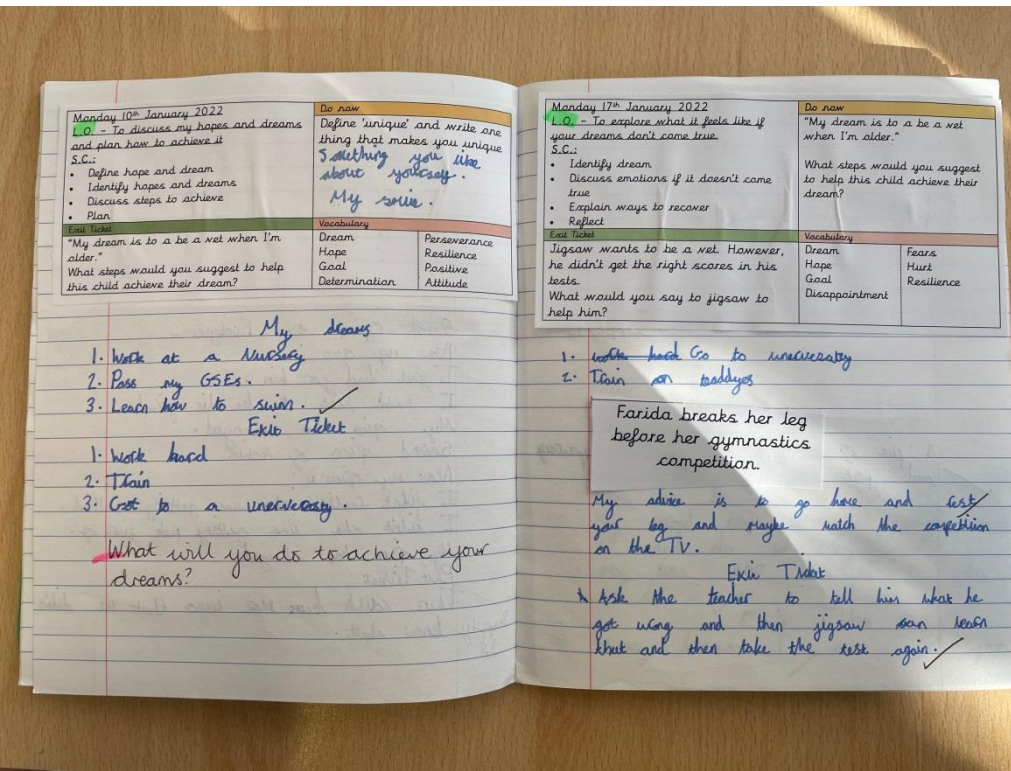 Monday 10th January 2022
L.O. - To discuss my hopes and dreams
and plan how to achieve it
S.C.:
• Define hope and dream
• Identify hopes and dreams
• Discuss steps to achieve
• Plan
Do now
Define 'unique' and write one
thing that makes you unique
Something you like
about yourself.
My
Exit Ticket
"My dream is to a be a vet when I'm
older."
What steps would you suggest to help
this child achieve their dream?
Vocabulary
Dream
Hope
Goal
Determination
Perseverance
Resilience
Positive
Attitude
My dreams
1. Work at a Nursery
2. Pass my GSEs.
3. Learn how to swim.
Exit Ticket
1. Work hard
2. Train
3. Got to a
What will you do to achieve your
dreams?
Monday 17th January 2022
L.O. - To explore what it feels like if
your dreams don't come true.
S.C.:
• Identify dream
• Discuss emotions if it doesn't come
true
• Explain ways to recover
• Reflect
Do now
"My dream is to a be a vet
when I'm older."
What steps would you suggest
to help this child achieve their
dream?
Exit Ticket
Jigsaw wants to be a vet. However,
he didn't get the right scores in his
tests.
What would you say to jigsaw to
help him?
Vocabulary
Dream
Hope
Goal
Disappointment
Fears
Hurt
Resilience
1. work hard Go to
2. Train on
Farida breaks her leg
before her gymnastics
competition.
My advice is to go home and rest
your leg and maybe watch the competition
on the TV.
Exit Ticket
Ask the teacher to tell him what he
got wrong and then jigsaw can learn
that and then take the test again.